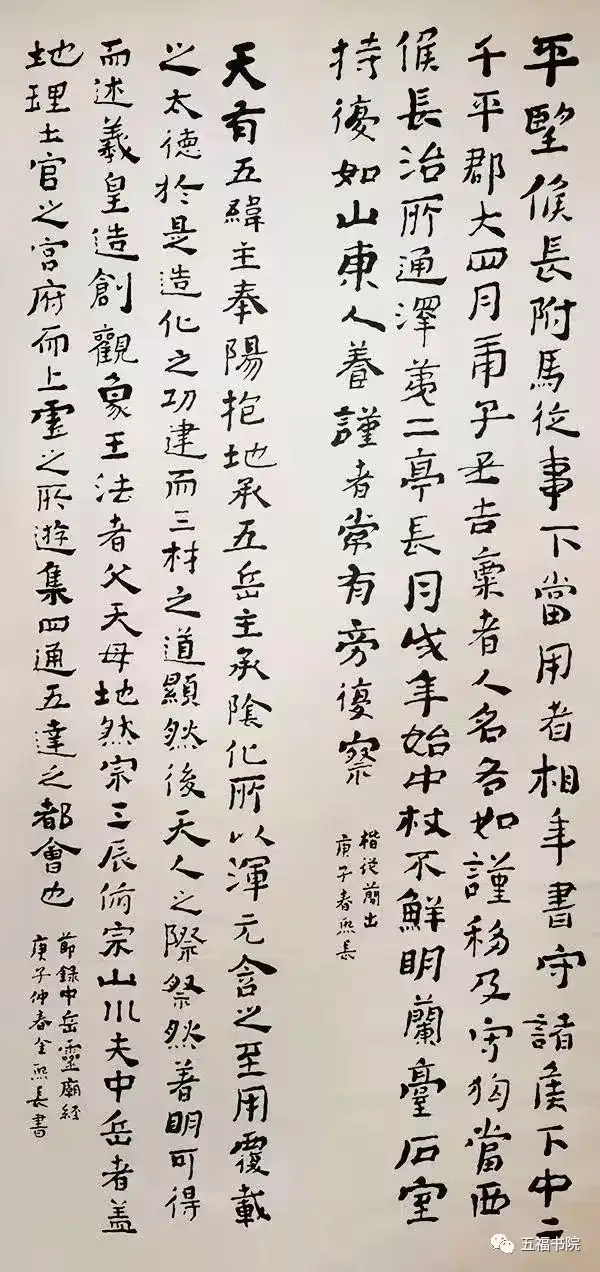 平望候長附馬從事下當用者相年書守諸侯下中二
千平郡大四月甬子丑吉稟者人名各如謹移及守狗當西
候長治所通澤苐二亭長月戌年始中杖不鮮明蘭臺石室
持復如山東人養謹者常有旁復察
楷從簡出
庚子春熙長
天有五緯主奉陽抱地承五岳主承陰化所以渾元含之至用覆載
之太德於是造化之功建而三材之道顯然後天人之際祭然著明可得
而述羲皇造創觀象王法者父天母地然宗三辰俯宗山川夫中岳者蓋
地理土官之宮府而上靈之所遊集四通五達之都會也
節錄中岳靈廟經
庚子仲春金熙長書
五福书院